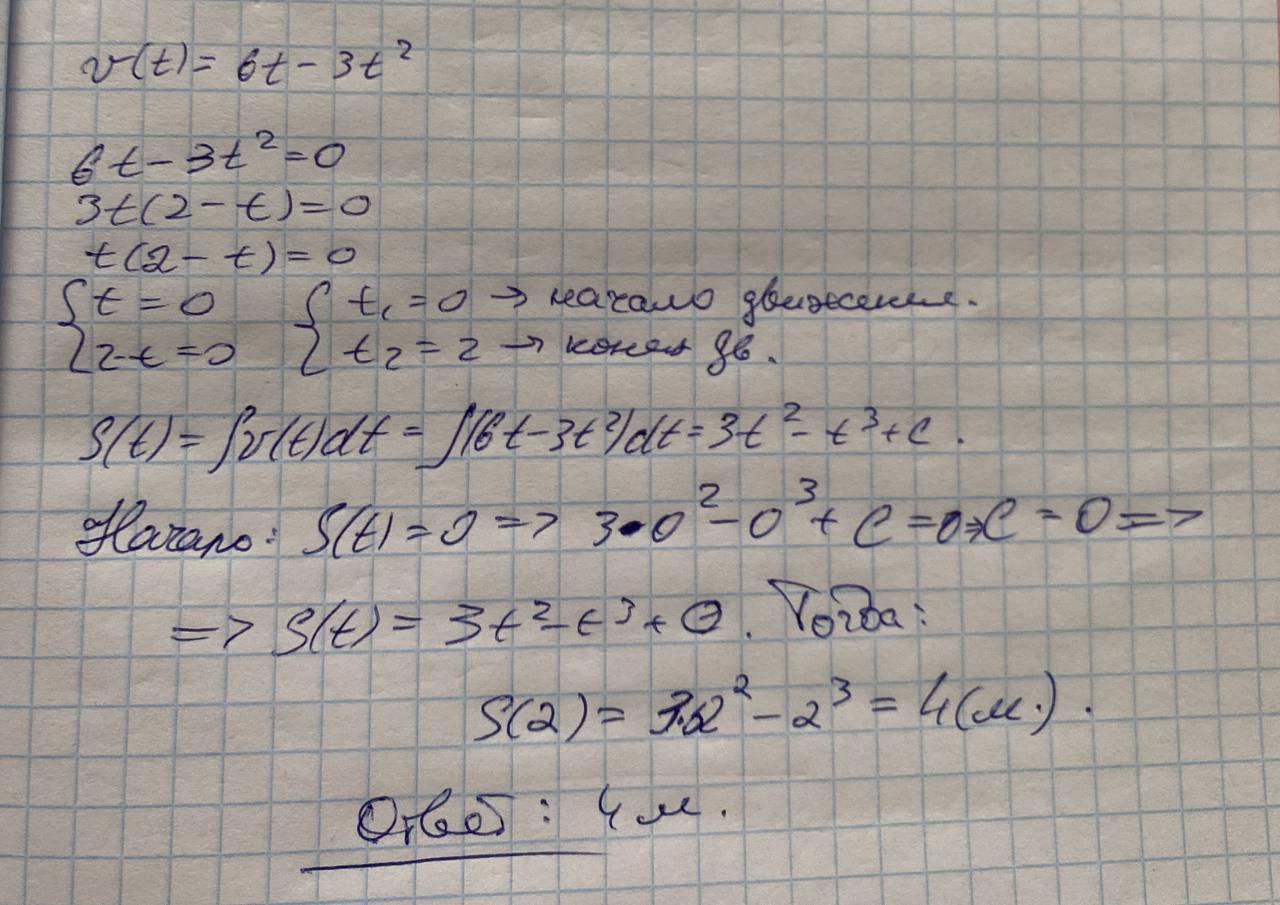 v(t) = 6t - 3t²
6t - 3t² = 0
3t(2 - t) = 0
t(2 - t) = 0
{ t = 0 { t₁ = 0 → начало движения.
{ 2-t = 0 { t₂ = 2 → конец дв.
S(t) = ∫v(t)dt = ∫(6t-3t²)dt = 3t² - t³ + C.
Начало: S(t) = 0 => 3•0² - 0³ + C = 0 => C = 0 =>
=> S(t) = 3t² - t³ + 0. Тогда:
S(2) = 3·2² - 2³ = 4(м.).
Ответ: 4 м.